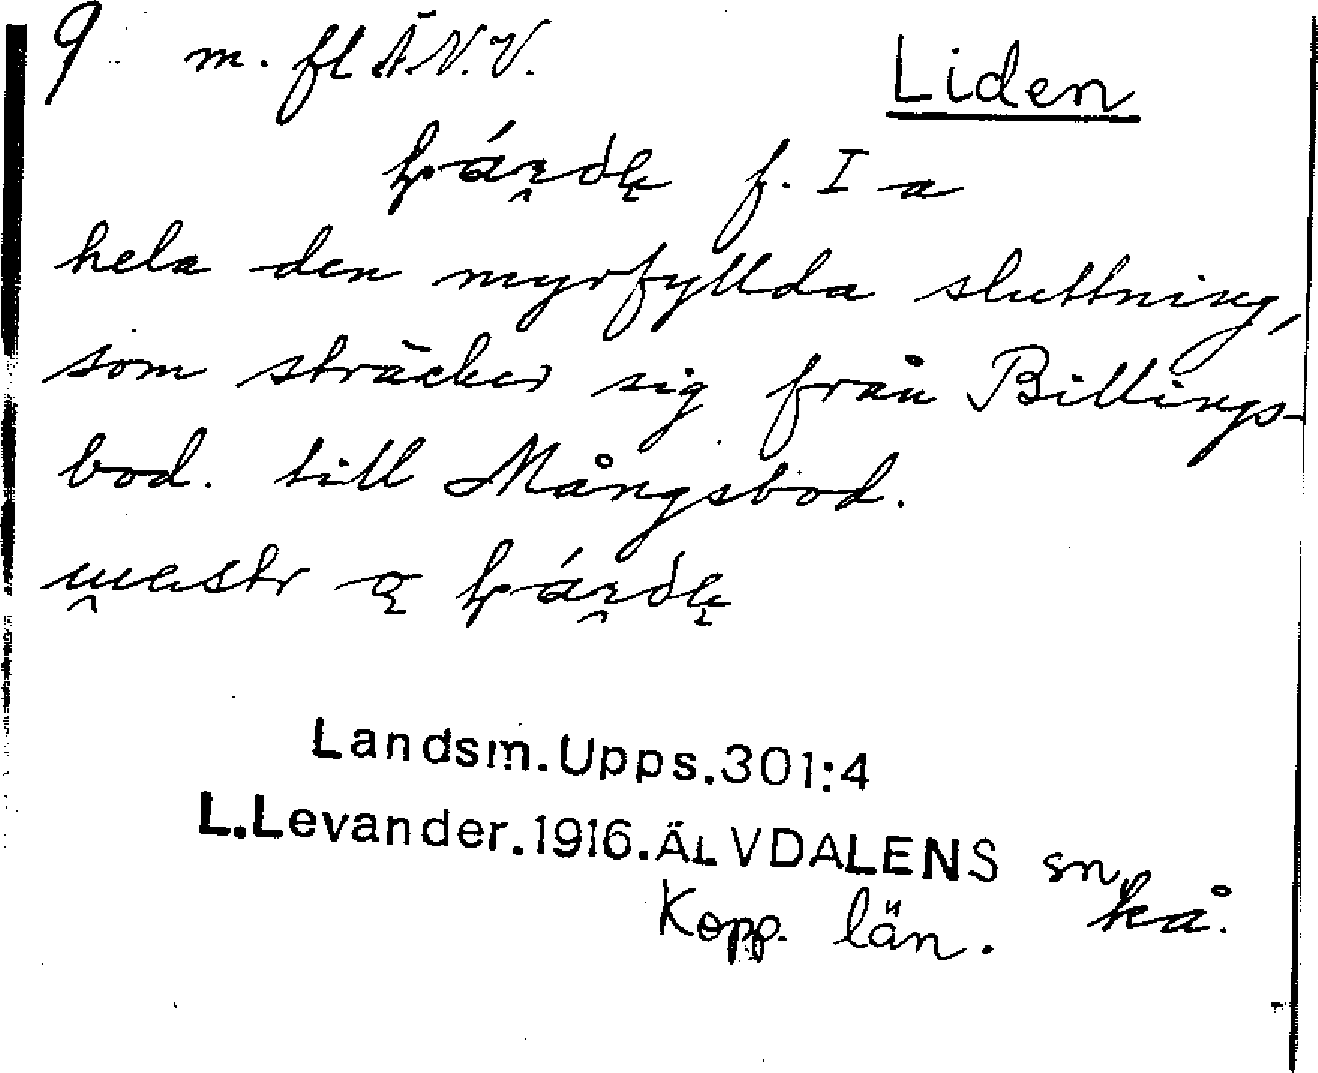 9 m. fl Ä.V.V.
Liden
f. I a
hela den myrfyllda sluttning,
som sträcker sig från Billings-
bod. till Mångsbod.
Landsm.Upps.301:4
L.Levander.1916.ÄLVDALENS sn.
Kopp. län. kå.